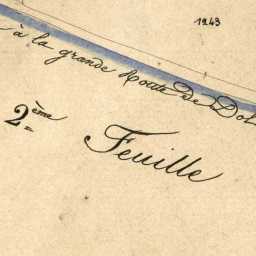 1243
à la grande Route De Dol
2ème
Feuille